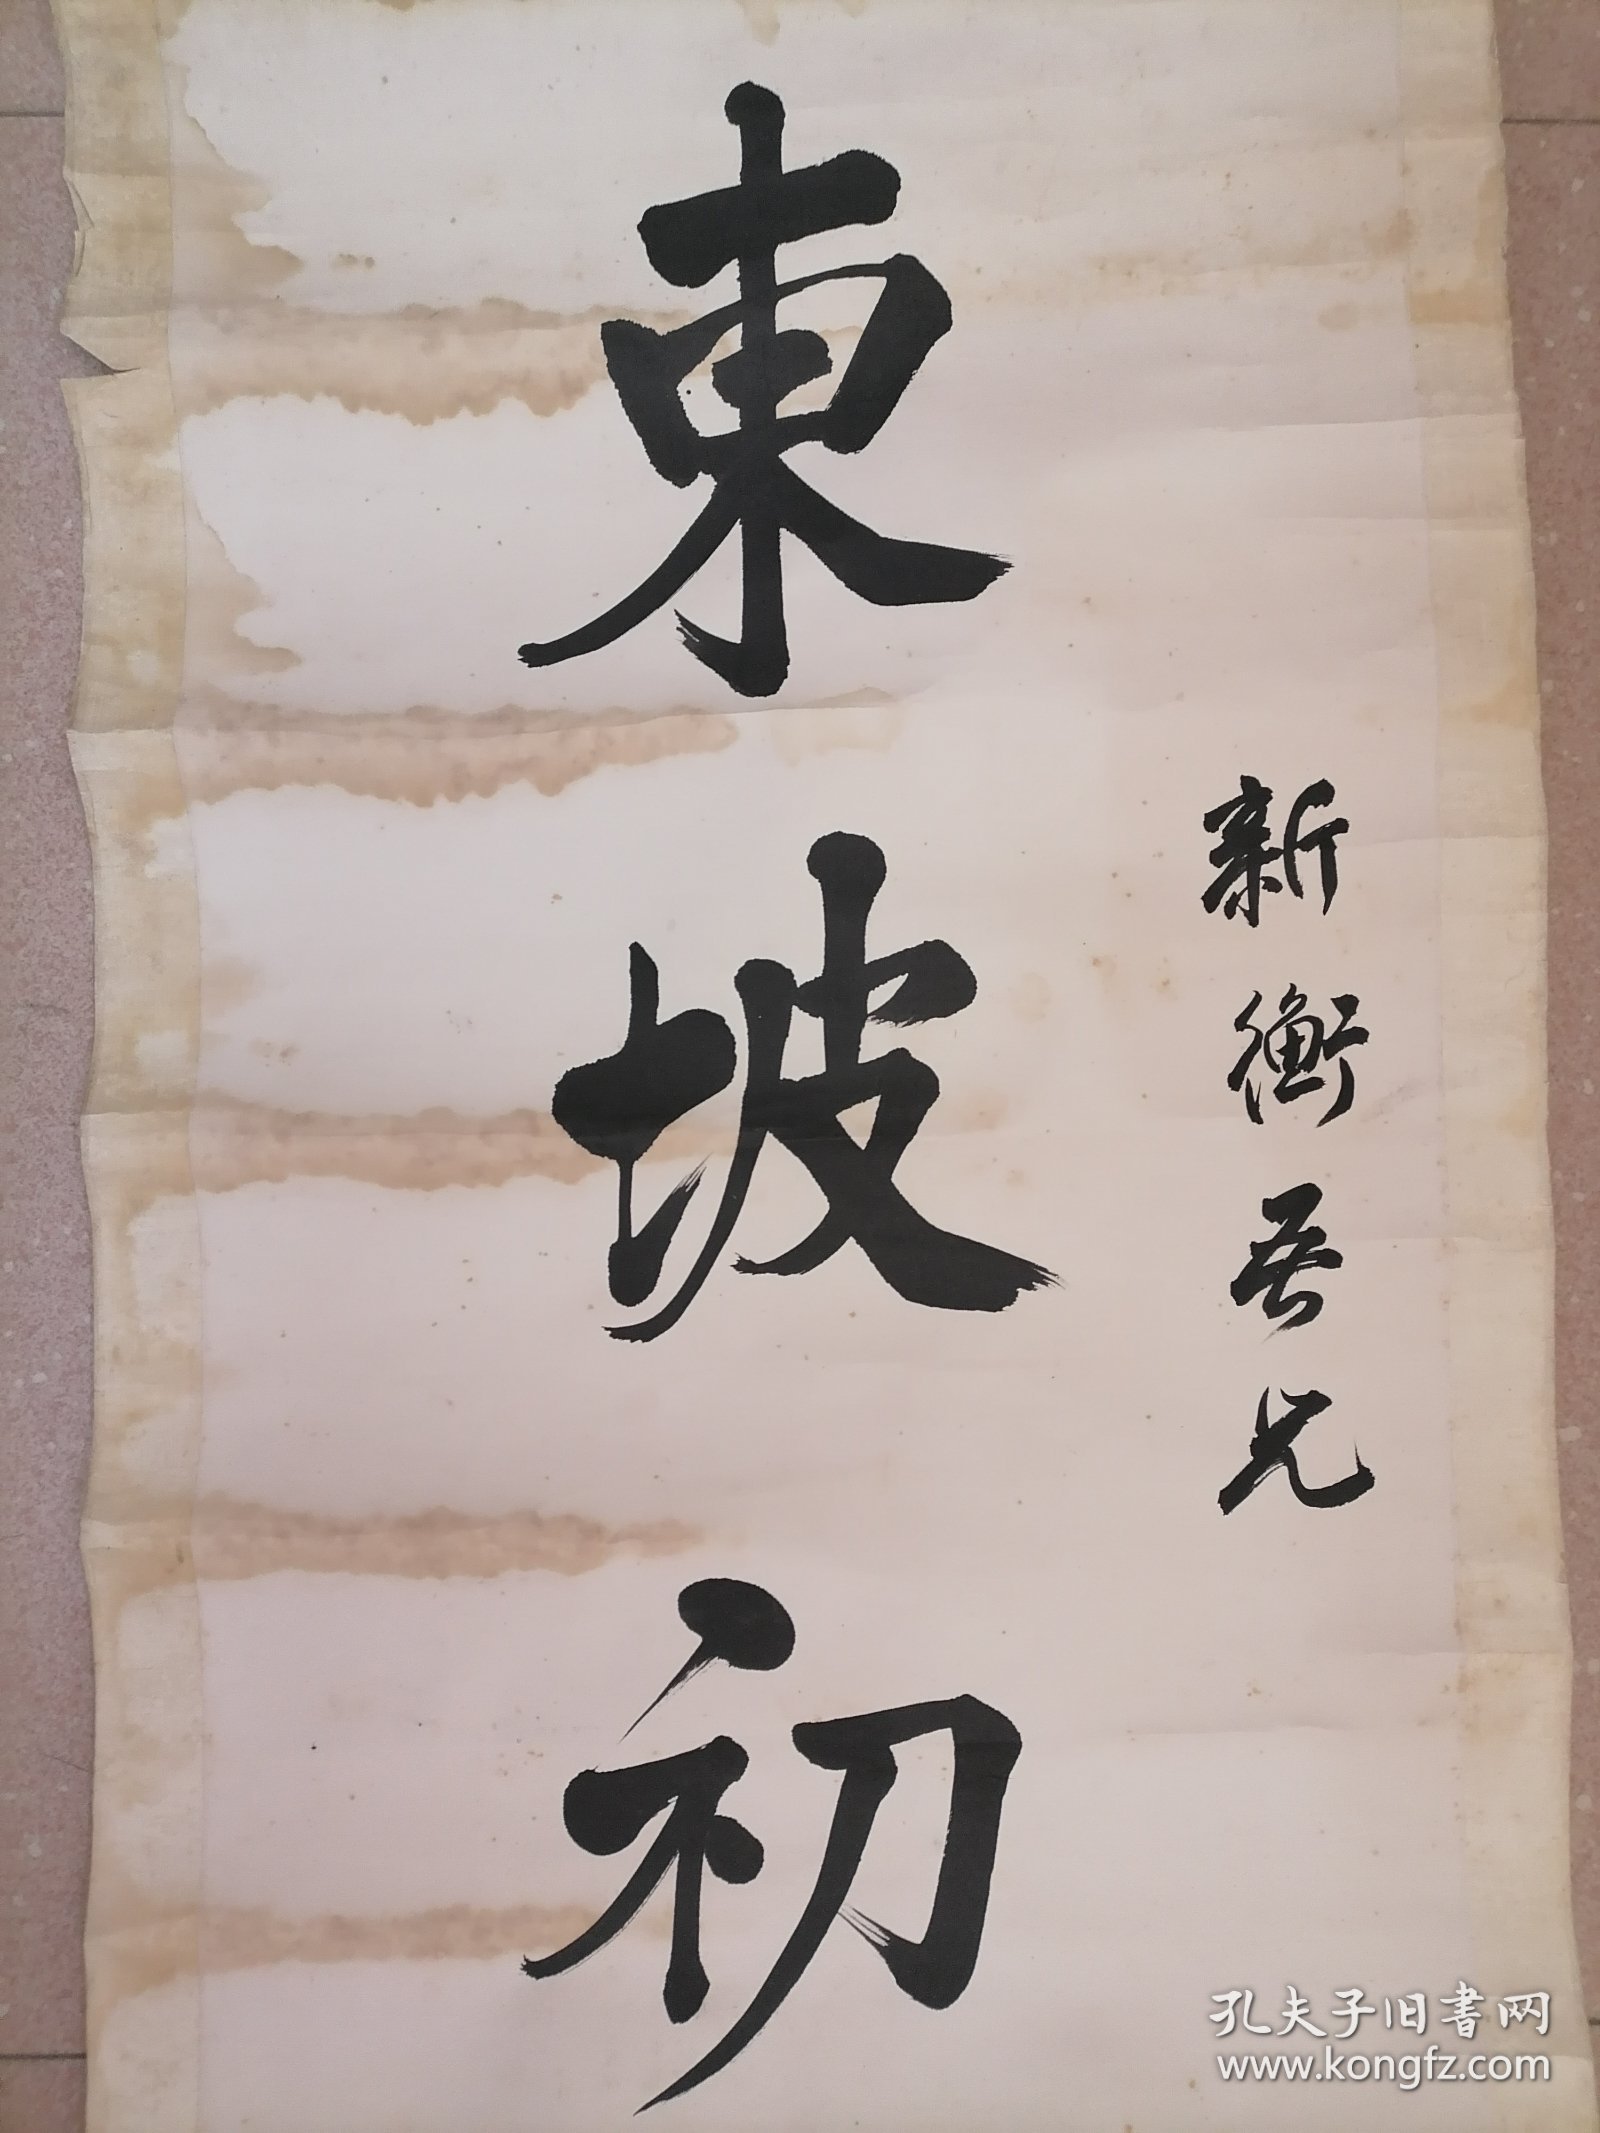 新衡吾兄
東坡初
孔夫子旧書网
www.kongfz.com